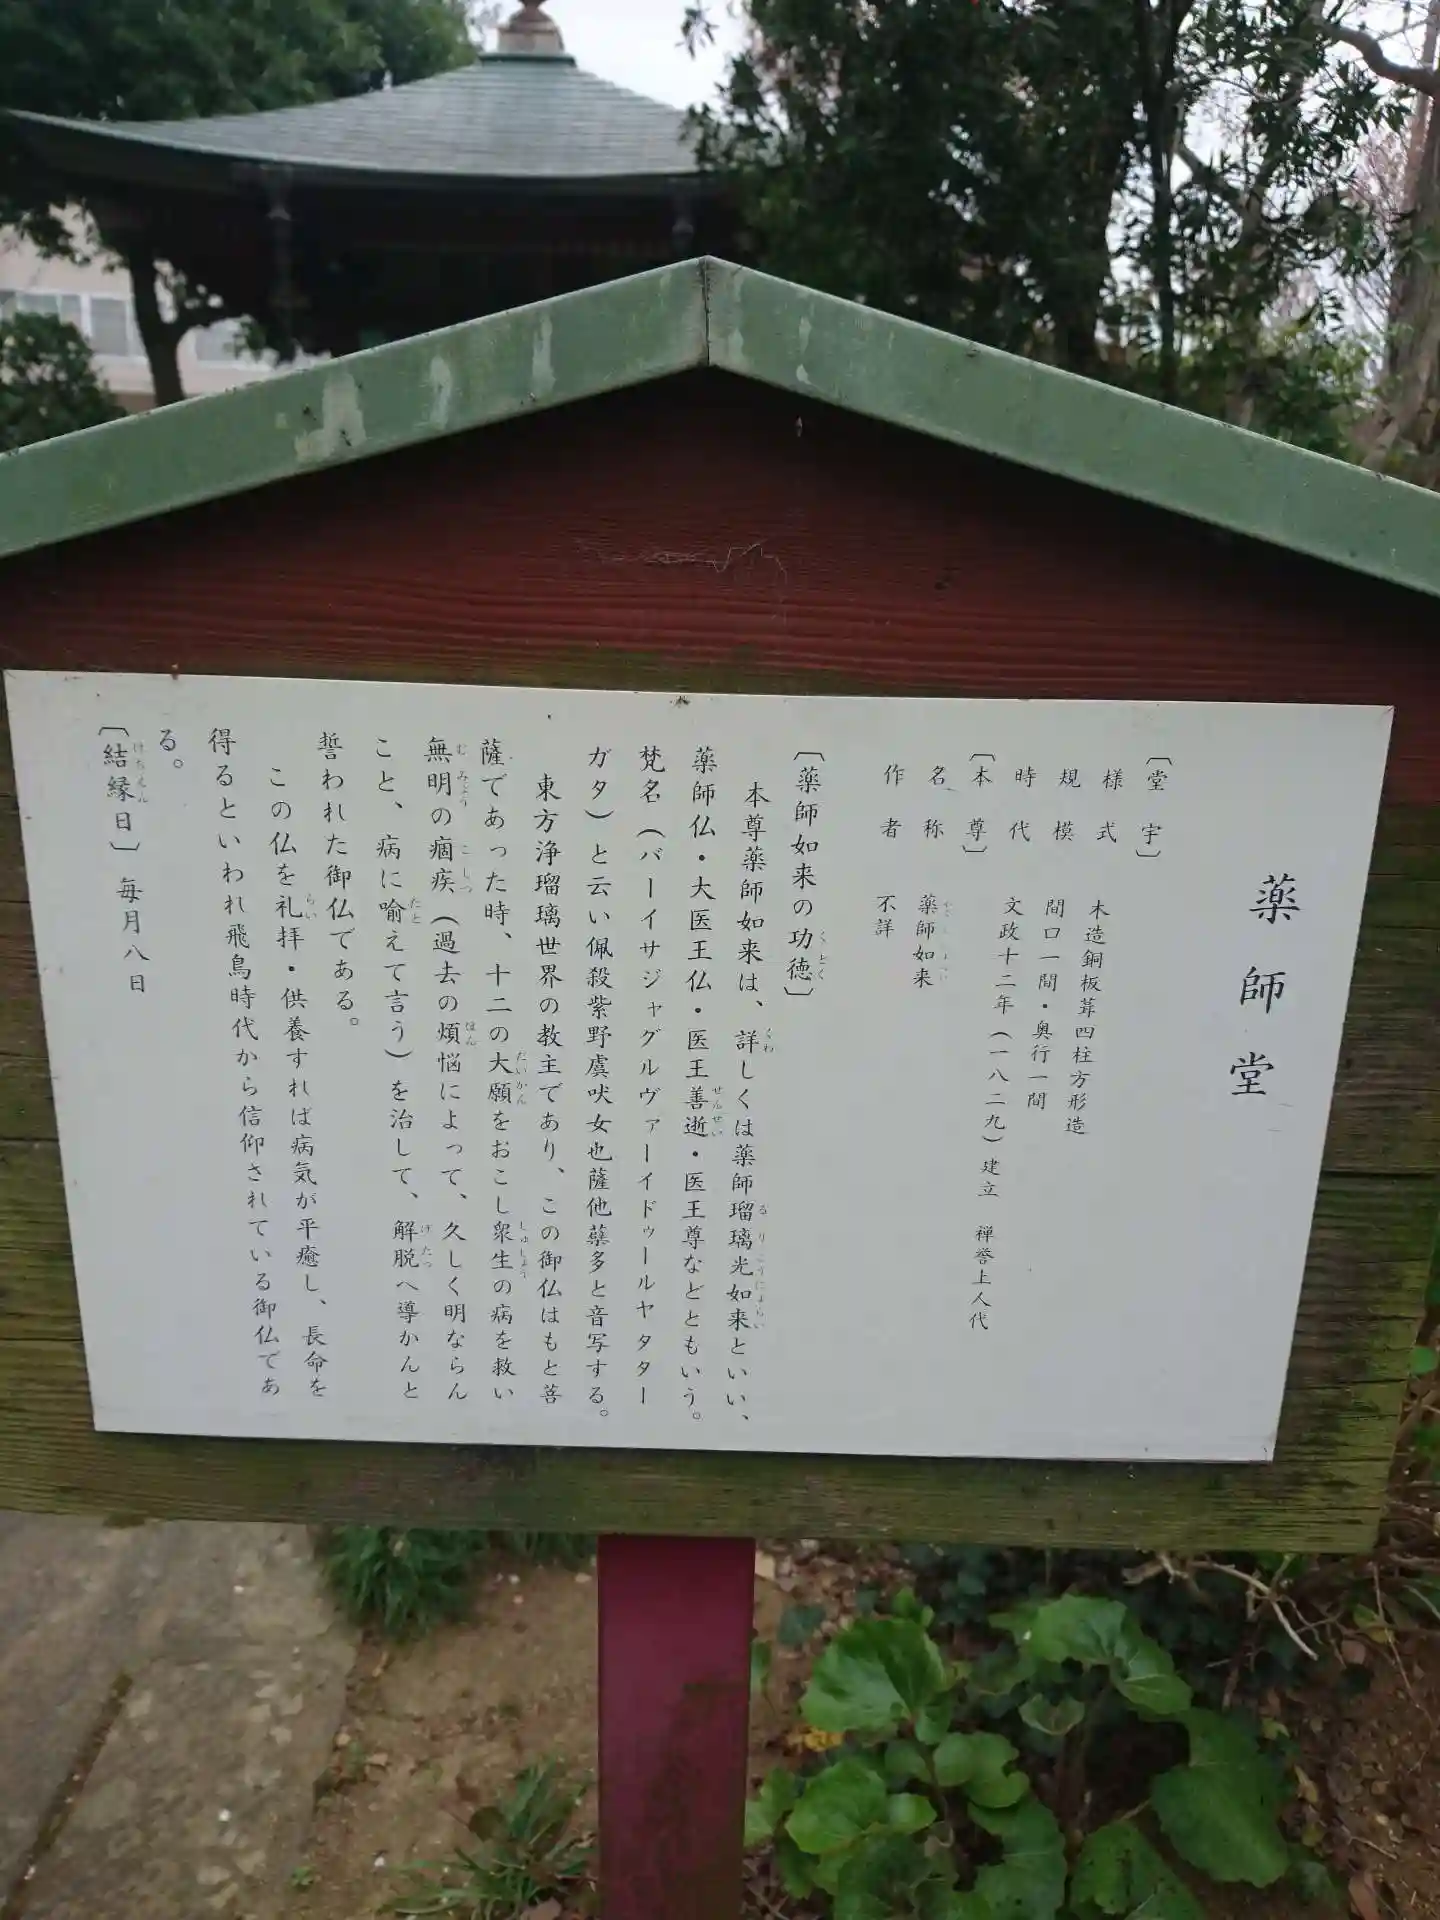 薬師堂
〔堂宇〕
様式 木造銅板葺四柱方形造
規模 間口一間・奥行一間
時代 文政十二年（一八二九）建立 禅誉上人代
〔本尊〕
名称 薬師如来
作者 不詳
〔薬師如来の功徳〕
本尊薬師如来は、詳しくは薬師瑠璃光如来といい、
薬師仏・大医王仏・医王善逝・医王尊などともいう。
梵名（バーイサジャグルヴァーイドゥールヤタター
ガタ）と云い佩殺紫野虞吠女也薩他蘖多と音写する。
東方浄瑠璃世界の教主であり、この御仏はもと菩
薩であった時、十二の大願をおこし衆生の病を救い
無明の痼疾（過去の煩悩によって、久しく明ならん
こと、病に喻えて言う）を治して、解脱へ導かんと
誓われた御仏である。
この仏を礼拝・供養すれば病気が平癒し、長命を
得るといわれ飛鳥時代から信仰されている御仏であ
る。
〔結縁日〕毎月八日